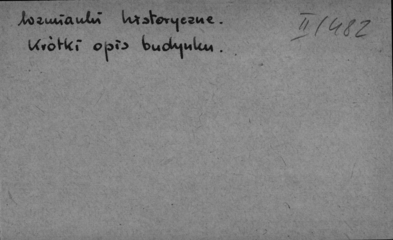 Wzmianki historyczne.
II/482
Krótki opis budynku.